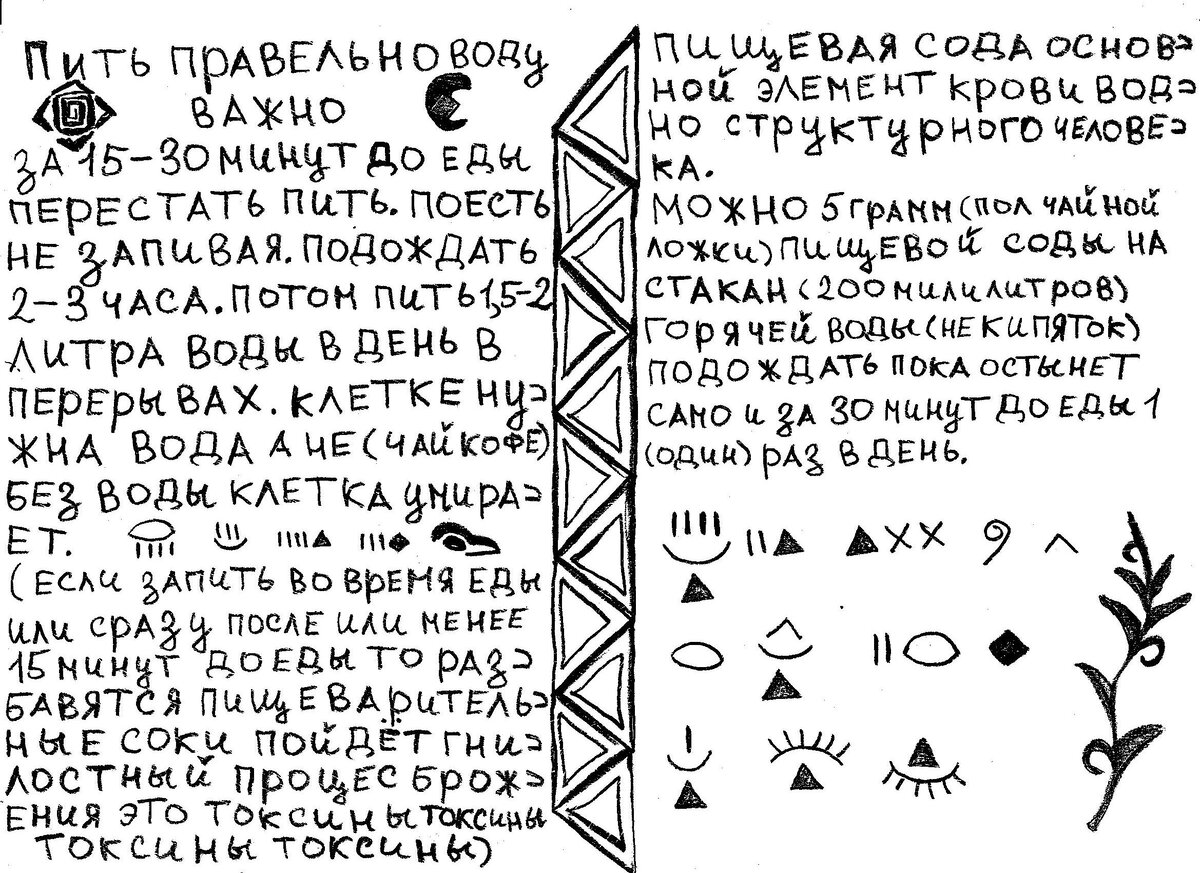 ПИТЬ ПРАВЕЛЬНО ВОДУ
ВАЖНО
ЗА 15-30 МИНУТ ДО ЕДЫ
ПЕРЕСТАТЬ ПИТЬ. ПОЕСТЬ
НЕ ЗАПИВАЯ. ПОДОЖДАТЬ
2-3 ЧАСА. ПОТОМ ПИТЬ 1,5-2
ЛИТРА ВОДЫ В ДЕНЬ В
ПЕРЕРЫВАХ. КЛЕТКЕ НУ=
ЖНА ВОДА А НЕ (ЧАЙ КОФЕ)
БЕЗ ВОДЫ КЛЕТКА УМИРА=
ЕТ.
(ЕСЛИ ЗАПИТЬ ВО ВРЕМЯ ЕДЫ
ИЛИ СРАЗУ ПОСЛЕ ИЛИ МЕНЕЕ
15 МИНУТ ДО ЕДЫ ТО РАЗ=
БАВЯТСЯ ПИЩЕВАРИТЕЛЬ=
НЫЕ СОКИ ПОЙДЁТ ГНИ=
ЛОСТНЫЙ ПРОЦЕС БРОЖ=
ЕНИЯ ЭТО ТОКСИНЫ ТОКСИНЫ
ТОКСИНЫ ТОКСИНЫ)
ПИЩЕВАЯ СОДА ОСНОВ=
НОЙ ЭЛЕМЕНТ КРОВИ ВОД=
НО СТРУКТУРНОГО ЧЕЛОВЕ=
КА.
МОЖНО 5 ГРАММ (ПОЛ ЧАЙНОЙ
ЛОЖКИ) ПИЩЕВОЙ СОДЫ НА
СТАКАН (200 МИЛИЛИТРОВ)
ГОРЯЧЕЙ ВОДЫ (НЕ КИПЯТОК)
ПОДОЖДАТЬ ПОКА ОСТЫНЕТ
САМО И ЗА 30 МИНУТ ДО ЕДЫ 1
(ОДИН) РАЗ В ДЕНЬ.